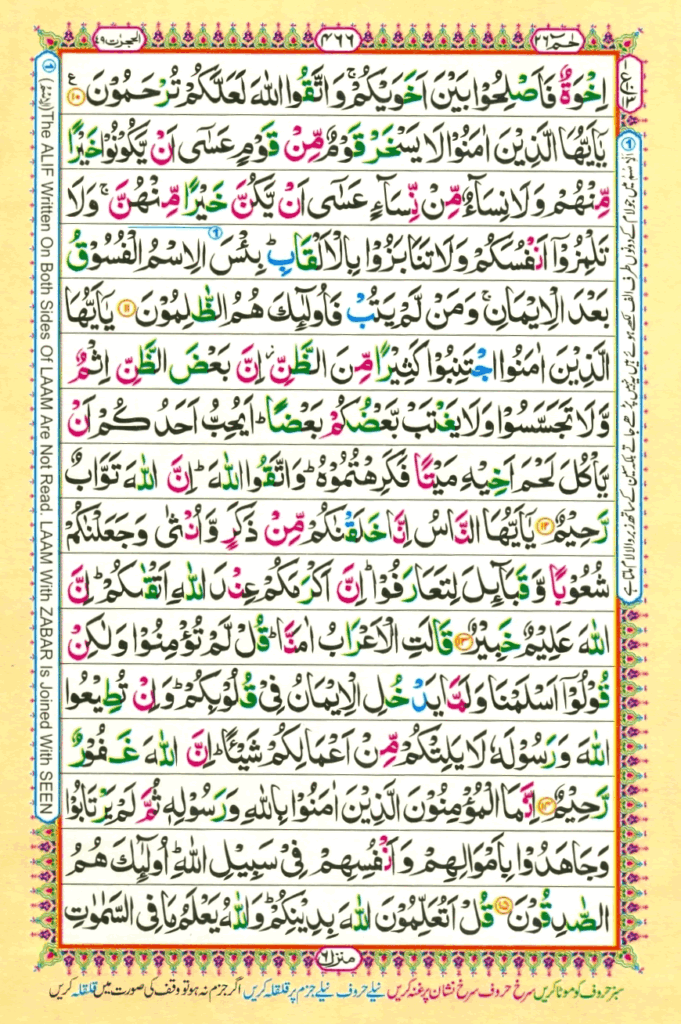 الحجرٰت ٤٩
٤٦٦
حٰمٓ ٢٦
اِخْوَةٌ فَاَصْلِحُوْا بَيْنَ اَخَوَيْكُمْ ۚ وَاتَّقُوا اللّٰهَ لَعَلَّكُمْ تُرْحَمُوْنَ ﴿١٠﴾ ع
يٰۤاَيُّهَا الَّذِيْنَ اٰمَنُوْا لَا يَسْخَرْ قَوْمٌ مِّنْ قَوْمٍ عَسٰۤى اَنْ يَّكُوْنُوْا خَيْرًا
مِّنْهُمْ وَلَا نِسَآءٌ مِّنْ نِّسَآءٍ عَسٰۤى اَنْ يَّكُنَّ خَيْرًا مِّنْهُنَّ ۚ وَلَا
تَلْمِزُوْۤا اَنْفُسَكُمْ وَلَا تَنَابَزُوْا بِالْاَلْقَابِ ؕ بِئْسَ الِاسْمُ الْفُسُوْقُ
بَعْدَ الْاِيْمَانِ ۚ وَمَنْ لَّمْ يَتُبْ فَاُولٰٓئِكَ هُمُ الظّٰلِمُوْنَ ﴿١١﴾ يٰۤاَيُّهَا
الَّذِيْنَ اٰمَنُوا اجْتَنِبُوْا كَثِيْرًا مِّنَ الظَّنِّ ؗ اِنَّ بَعْضَ الظَّنِّ اِثْمٌ
وَّلَا تَجَسَّسُوْا وَلَا يَغْتَبْ بَّعْضُكُمْ بَعْضًا ؕ اَيُحِبُّ اَحَدُكُمْ اَنْ
يَّاْكُلَ لَحْمَ اَخِيْهِ مَيْتًا فَكَرِهْتُمُوْهُ ؕ وَاتَّقُوا اللّٰهَ ؕ اِنَّ اللّٰهَ تَوَّابٌ
رَّحِيْمٌ ﴿١٢﴾ يٰۤاَيُّهَا النَّاسُ اِنَّا خَلَقْنٰكُمْ مِّنْ ذَكَرٍ وَّاُنْثٰى وَجَعَلْنٰكُمْ
شُعُوْبًا وَّقَبَآئِلَ لِتَعَارَفُوْا ؕ اِنَّ اَكْرَمَكُمْ عِنْدَ اللّٰهِ اَتْقٰىكُمْ ؕ اِنَّ
اللّٰهَ عَلِيْمٌ خَبِيْرٌ ﴿١٣﴾ قَالَتِ الْاَعْرَابُ اٰمَنَّا ؕ قُلْ لَّمْ تُؤْمِنُوْا وَلٰكِنْ
قُوْلُوْۤا اَسْلَمْنَا وَلَمَّا يَدْخُلِ الْاِيْمَانُ فِيْ قُلُوْبِكُمْ ؕ وَاِنْ تُطِيْعُوا
اللّٰهَ وَرَسُوْلَهٗ لَا يَلِتْكُمْ مِّنْ اَعْمَالِكُمْ شَيْـًٔا ؕ اِنَّ اللّٰهَ غَفُوْرٌ
رَّحِيْمٌ ﴿١٤﴾ اِنَّمَا الْمُؤْمِنُوْنَ الَّذِيْنَ اٰمَنُوْا بِاللّٰهِ وَرَسُوْلِهٖ ثُمَّ لَمْ يَرْتَابُوْا
وَجَاهَدُوْا بِاَمْوَالِهِمْ وَاَنْفُسِهِمْ فِيْ سَبِيْلِ اللّٰهِ ؕ اُولٰٓئِكَ هُمُ
الصّٰدِقُوْنَ ﴿١٥﴾ قُلْ اَتُعَلِّمُوْنَ اللّٰهَ بِدِيْنِكُمْ ؕ وَاللّٰهُ يَعْلَمُ مَا فِي السَّمٰوٰتِ
The ALIF Written On Both Sides Of LAAM Are Not Read. LAAM With ZABAR Is Joined With SEEN
منزل ٦
سبز حروف کو موٹا کریں سرخ حروف سرخ نشان پر غنہ کریں نیلے حروف نیلے جزم پر قلقلہ کریں اگر جزم نہ ہو تو وقف کی صورت میں قلقلہ کریں